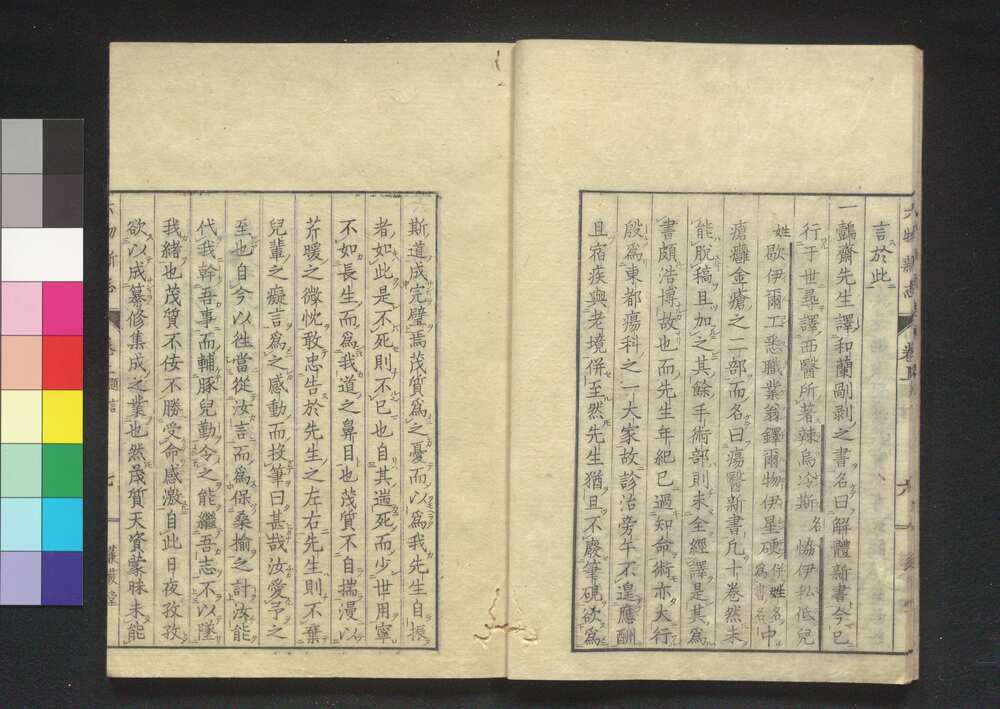 言於此
一鷧齋先生譯和蘭剮剥之書名曰解體新書今已
行于世尋譯西醫所著辣烏冷斯名協伊私低兒
姓歇伊爾工悉職業翁鐸爾物伊星硬併姓名為書名中
瘡瘍金瘡之二部而名曰瘍醫新書凡十卷然未
能脫稿且加之其餘手術部則未全經譯是其為
書頗浩博故也而先生年紀已過知命術亦大行
殷為東都瘍科之一大家故診治旁午不遑應酬
且宿疾與老境併至然先生猶且不廢筆硯欲為
斯道成完璧焉茂質為之憂而以為我先生自振
者如此是不死則不已也自其遄死而少世用寧
不如長生而為我道之鼻目也茂質不自揣漫以
芹暖之微忱敢忠告於先生之左右先生則不棄
兒輩之癡言為之感動而投筆曰甚哉汝愛予之
至也自今以徃當從汝言而為保桑榆之計汝能
代我幹吾事而輔豚兒勤令之能繼吾志不以墜
我緒也茂質不佞不勝受命感激自此日夜孜孜
欲以成纂修集成之業也然茂質天資蒙昧未能
六物新志
卷上
題言
七